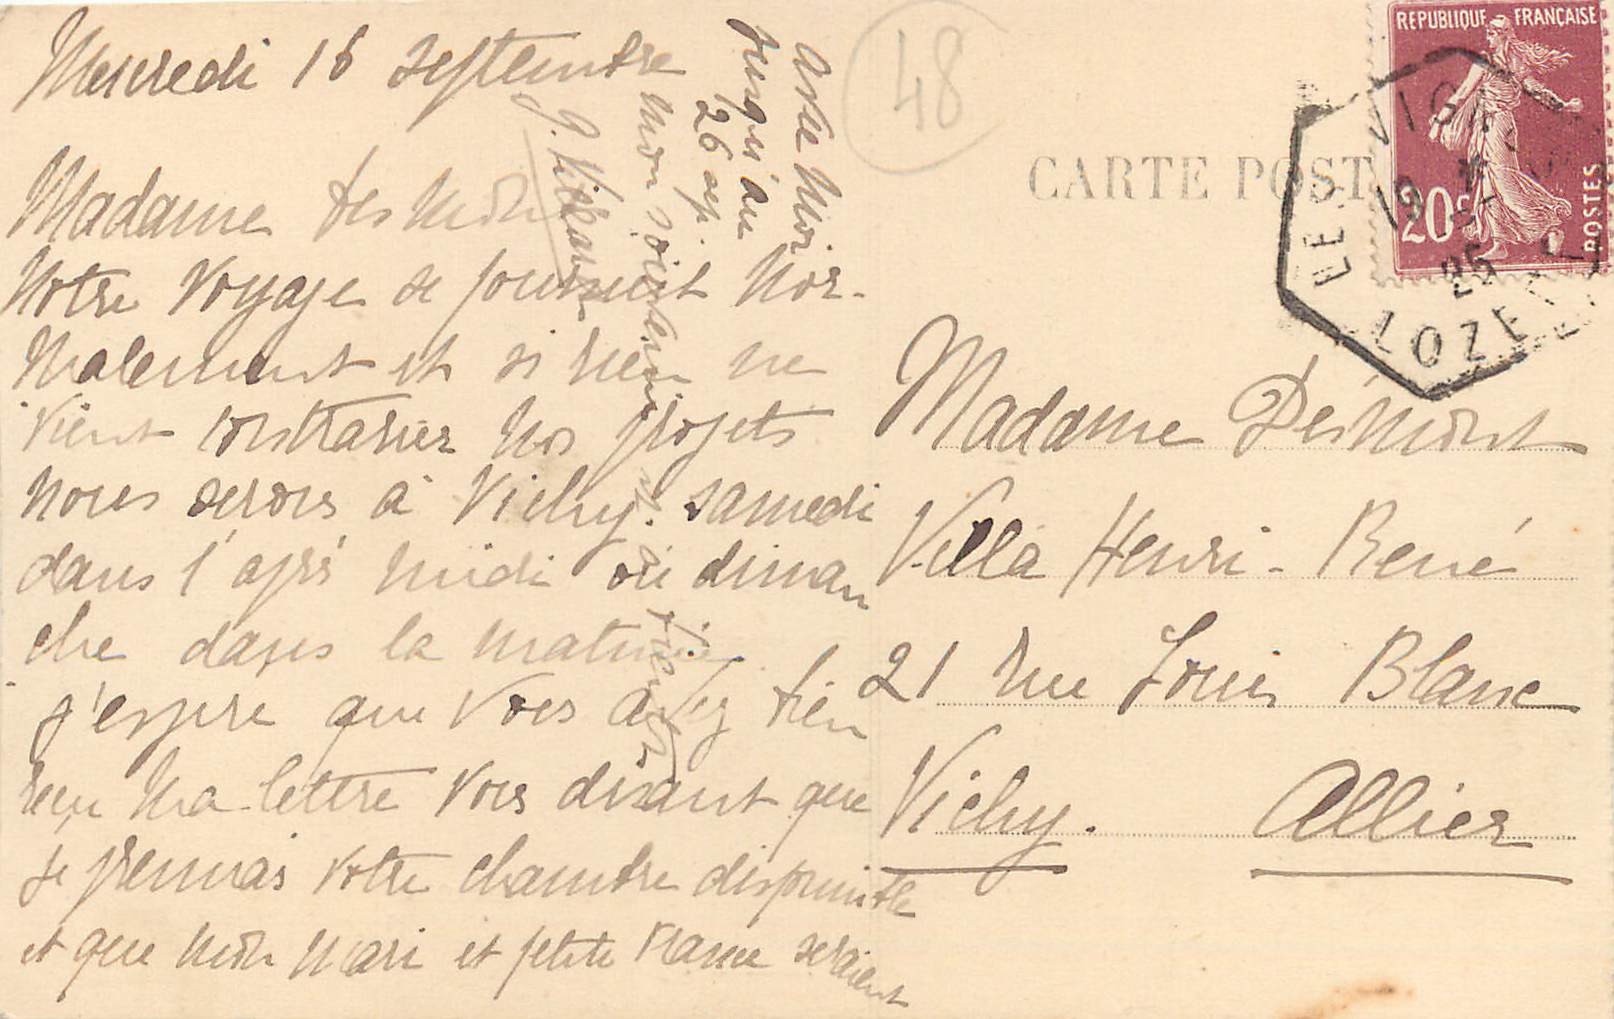 Mercredi 16 Septembre
Madame Desmont
Notre Voyage se poursuit Nor-
malement et si rien ne
vient contrarier nos projets
nous serons à Vichy. samedi
dans l'apré midi ou diman
che dans la matinée
j'espère que Vous avez bien
reçu ma lettre vous disant que
je prennais votre chambre disponible
et que mon mari et petite Mame seraient
avec moi
jusqu'au
26 sep.
mon souvenir
G.
48
CARTE POST
REPUBLIQUE FRANÇAISE
20c
POSTES
LE
VIGN
19
25
LOZERE
Madame Désmont
Villa Henri-René
21 rue Louis Blanc
Vichy. Allier